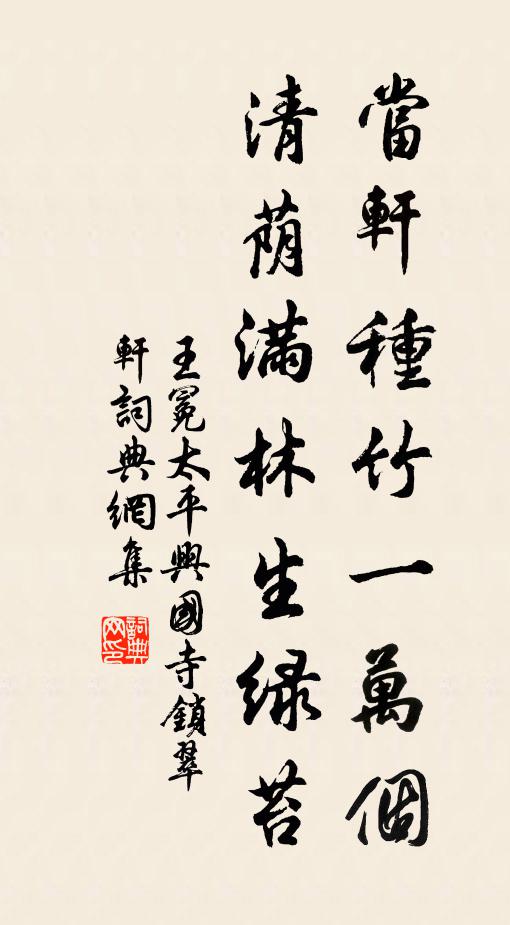 當軒種竹一萬個
清蔭滿林生綠苔
王冕太平興國寺鎖翠
軒詞典網集
詞典
网印